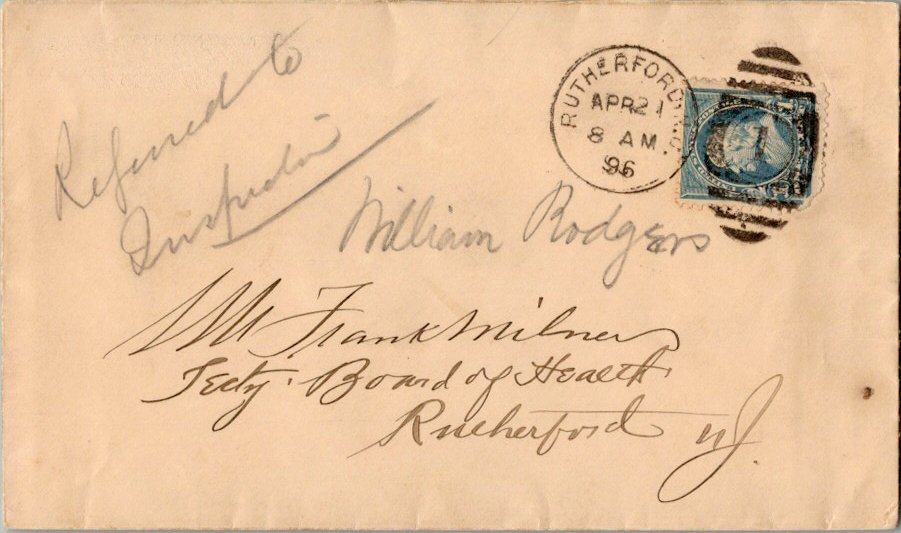 Referred to
Inspector
RUTHERFORD, N.J.
APR 21
8 AM
96
1
William Rodgers
Mr Frank Milner
Secty. Board of Health
Rutherford NJ